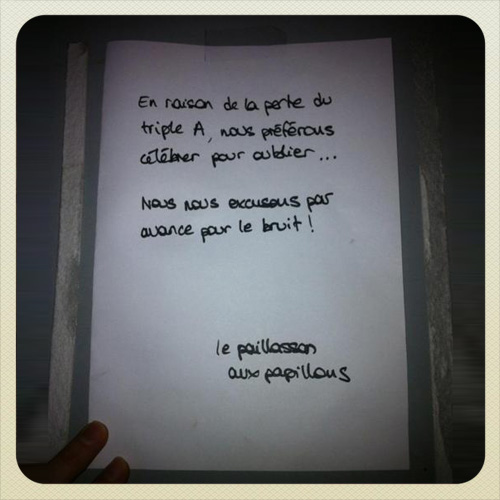 En raison de la perte du
triple A, nous préférons
célébrer pour oublier...
Nous nous excusons par
avance pour le bruit !
le paillasson
aux papillons